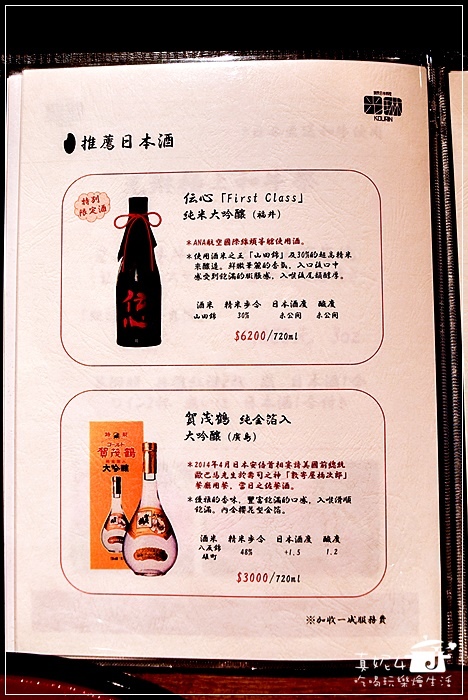 光琳
KOURIN
推薦日本酒
特別
限定酒
伝心「First Class」
純米大吟釀(福井)
*ANA航空國際線頭等艙使用酒。
*使用酒米之王「山田錦」及30%的超高精米
來釀造。鮮嫩華麗的香氣,入口後口中
感受到飽滿的膨脹感,入喉後尾韻醇厚。
酒米 精米步合 日本酒度 酸度
山田錦 30% 未公開 未公開
$6200/720ml
伝心
賀茂鶴 純金箔入
大吟釀(廣島)
*2014年4月日本安倍首相宴請美國前總統
歐巴馬先生於壽司之神「數寄屋橋次郎」
餐廳用餐,當日之佐餐酒。
*優雅的香味,豐富飽滿的口感,入喉滑順
飽滿。內含櫻花型金箔。
酒米 精米步合 日本酒度 酸度
八反錦 48% +1.5 1.2
雄町
$3000/720ml
ゴールド
賀茂鶴
大吟釀
※加收一成服務費
真妮4
吃喝玩樂繪生活